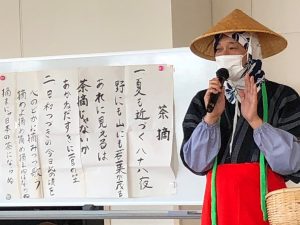 茶摘
一夏も近づく八十八夜
野にも山にも若葉が茂る
あれに見えるは
茶摘じゃないか
あかねだすきに菅の笠
二日和つづきの今日此の頃を
心のどかに摘みつつ歌ふ
摘めよ摘め摘め摘まねばならぬ
摘まにゃ日本の茶にならぬ